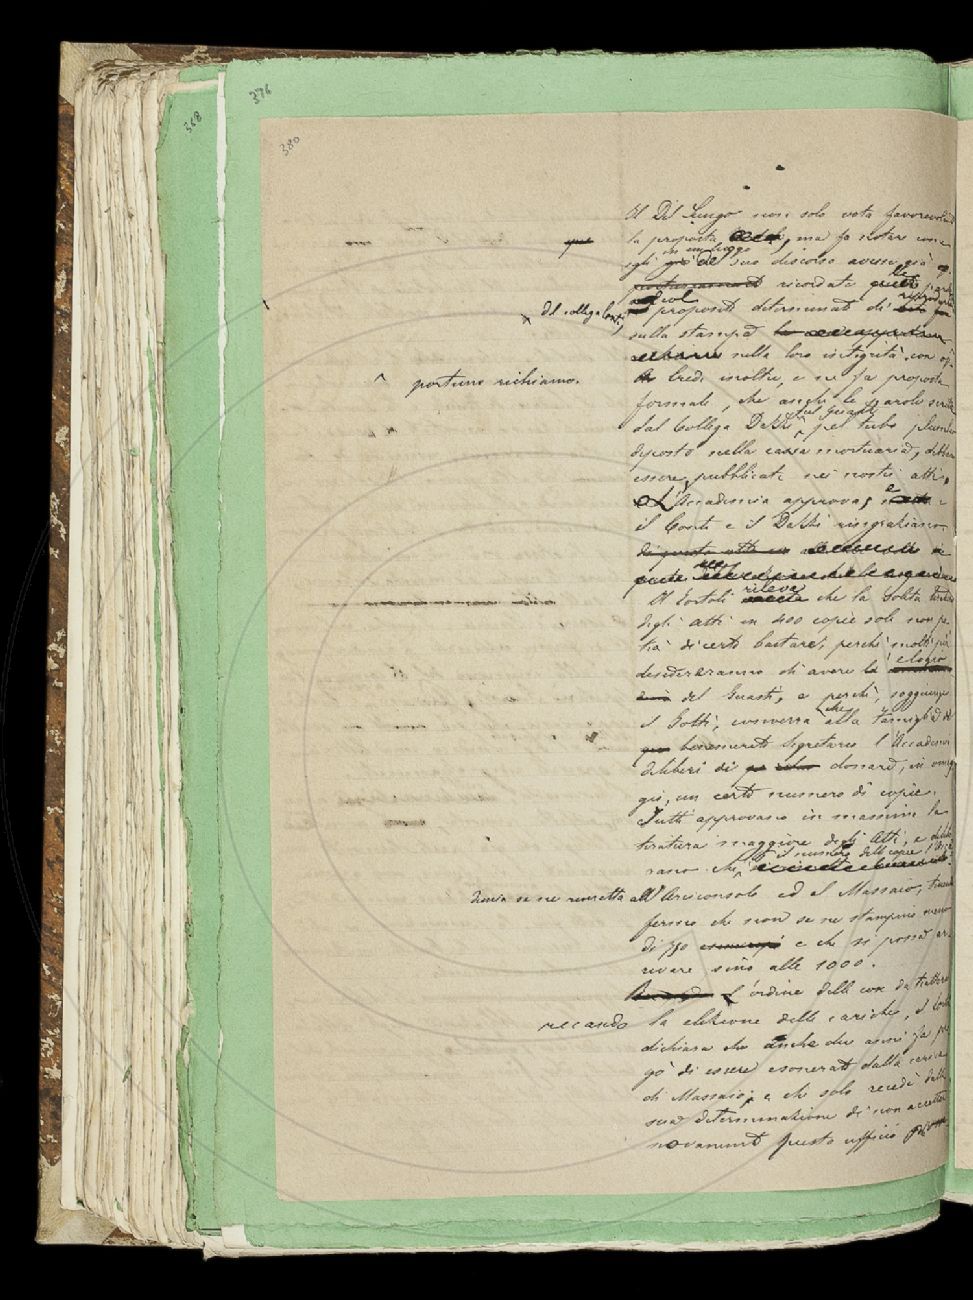 376
368
380
Il Del Lungo non solo vota favorevole
la proposta, ma fa notare come
egli in un luogo del suo discorso avesse già
ricordate quelle
propositi determinati di
del collega Conti,
sulla stampa
nella loro integrità con op-
portuno richiamo.
Crede inoltre, e ne fa proposta
formale, che anche le parole scritte
dal Collega Dazzi sul Guasti pel tubo plumbeo
deposto nella cassa mortuaria, debbano
essere pubblicate nei nostri atti.
L'Accademia approva, e
il Conti e il Dazzi ringraziano
Il Tortoli rileva che la solita tiratura
degli atti in 400 copie sole non po-
trà di certo bastare, perchè molti più
desidereranno di avere l'elogio
del Guasti, e perchè, soggiunge
il Gotti, converrà che alla famiglia del
benemerito Segretario l'Accademia
deliberi di donare, in omag-
gio, un certo numero di copie.
Tutti approvano in massima la
tiratura maggiore degli Atti, e
che il numero delle copie
se ne rimetta all'Arciconsolo ed al Massaio,
fermo che non se ne stampino meno
di 750 e che si possa ar-
rivare sino alle 1000.
L'ordine delle cose da trattare
recando la elezione delle cariche, il Conti
dichiara che anche due anni fa pre-
gò di essere esonerato dalla carica
di Massaio, e che solo recedè dalla
sua determinazione di non accettare
novamente questo ufficio